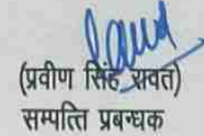 (प्रवीण सिंह रावत)
सम्पत्ति प्रबन्धक